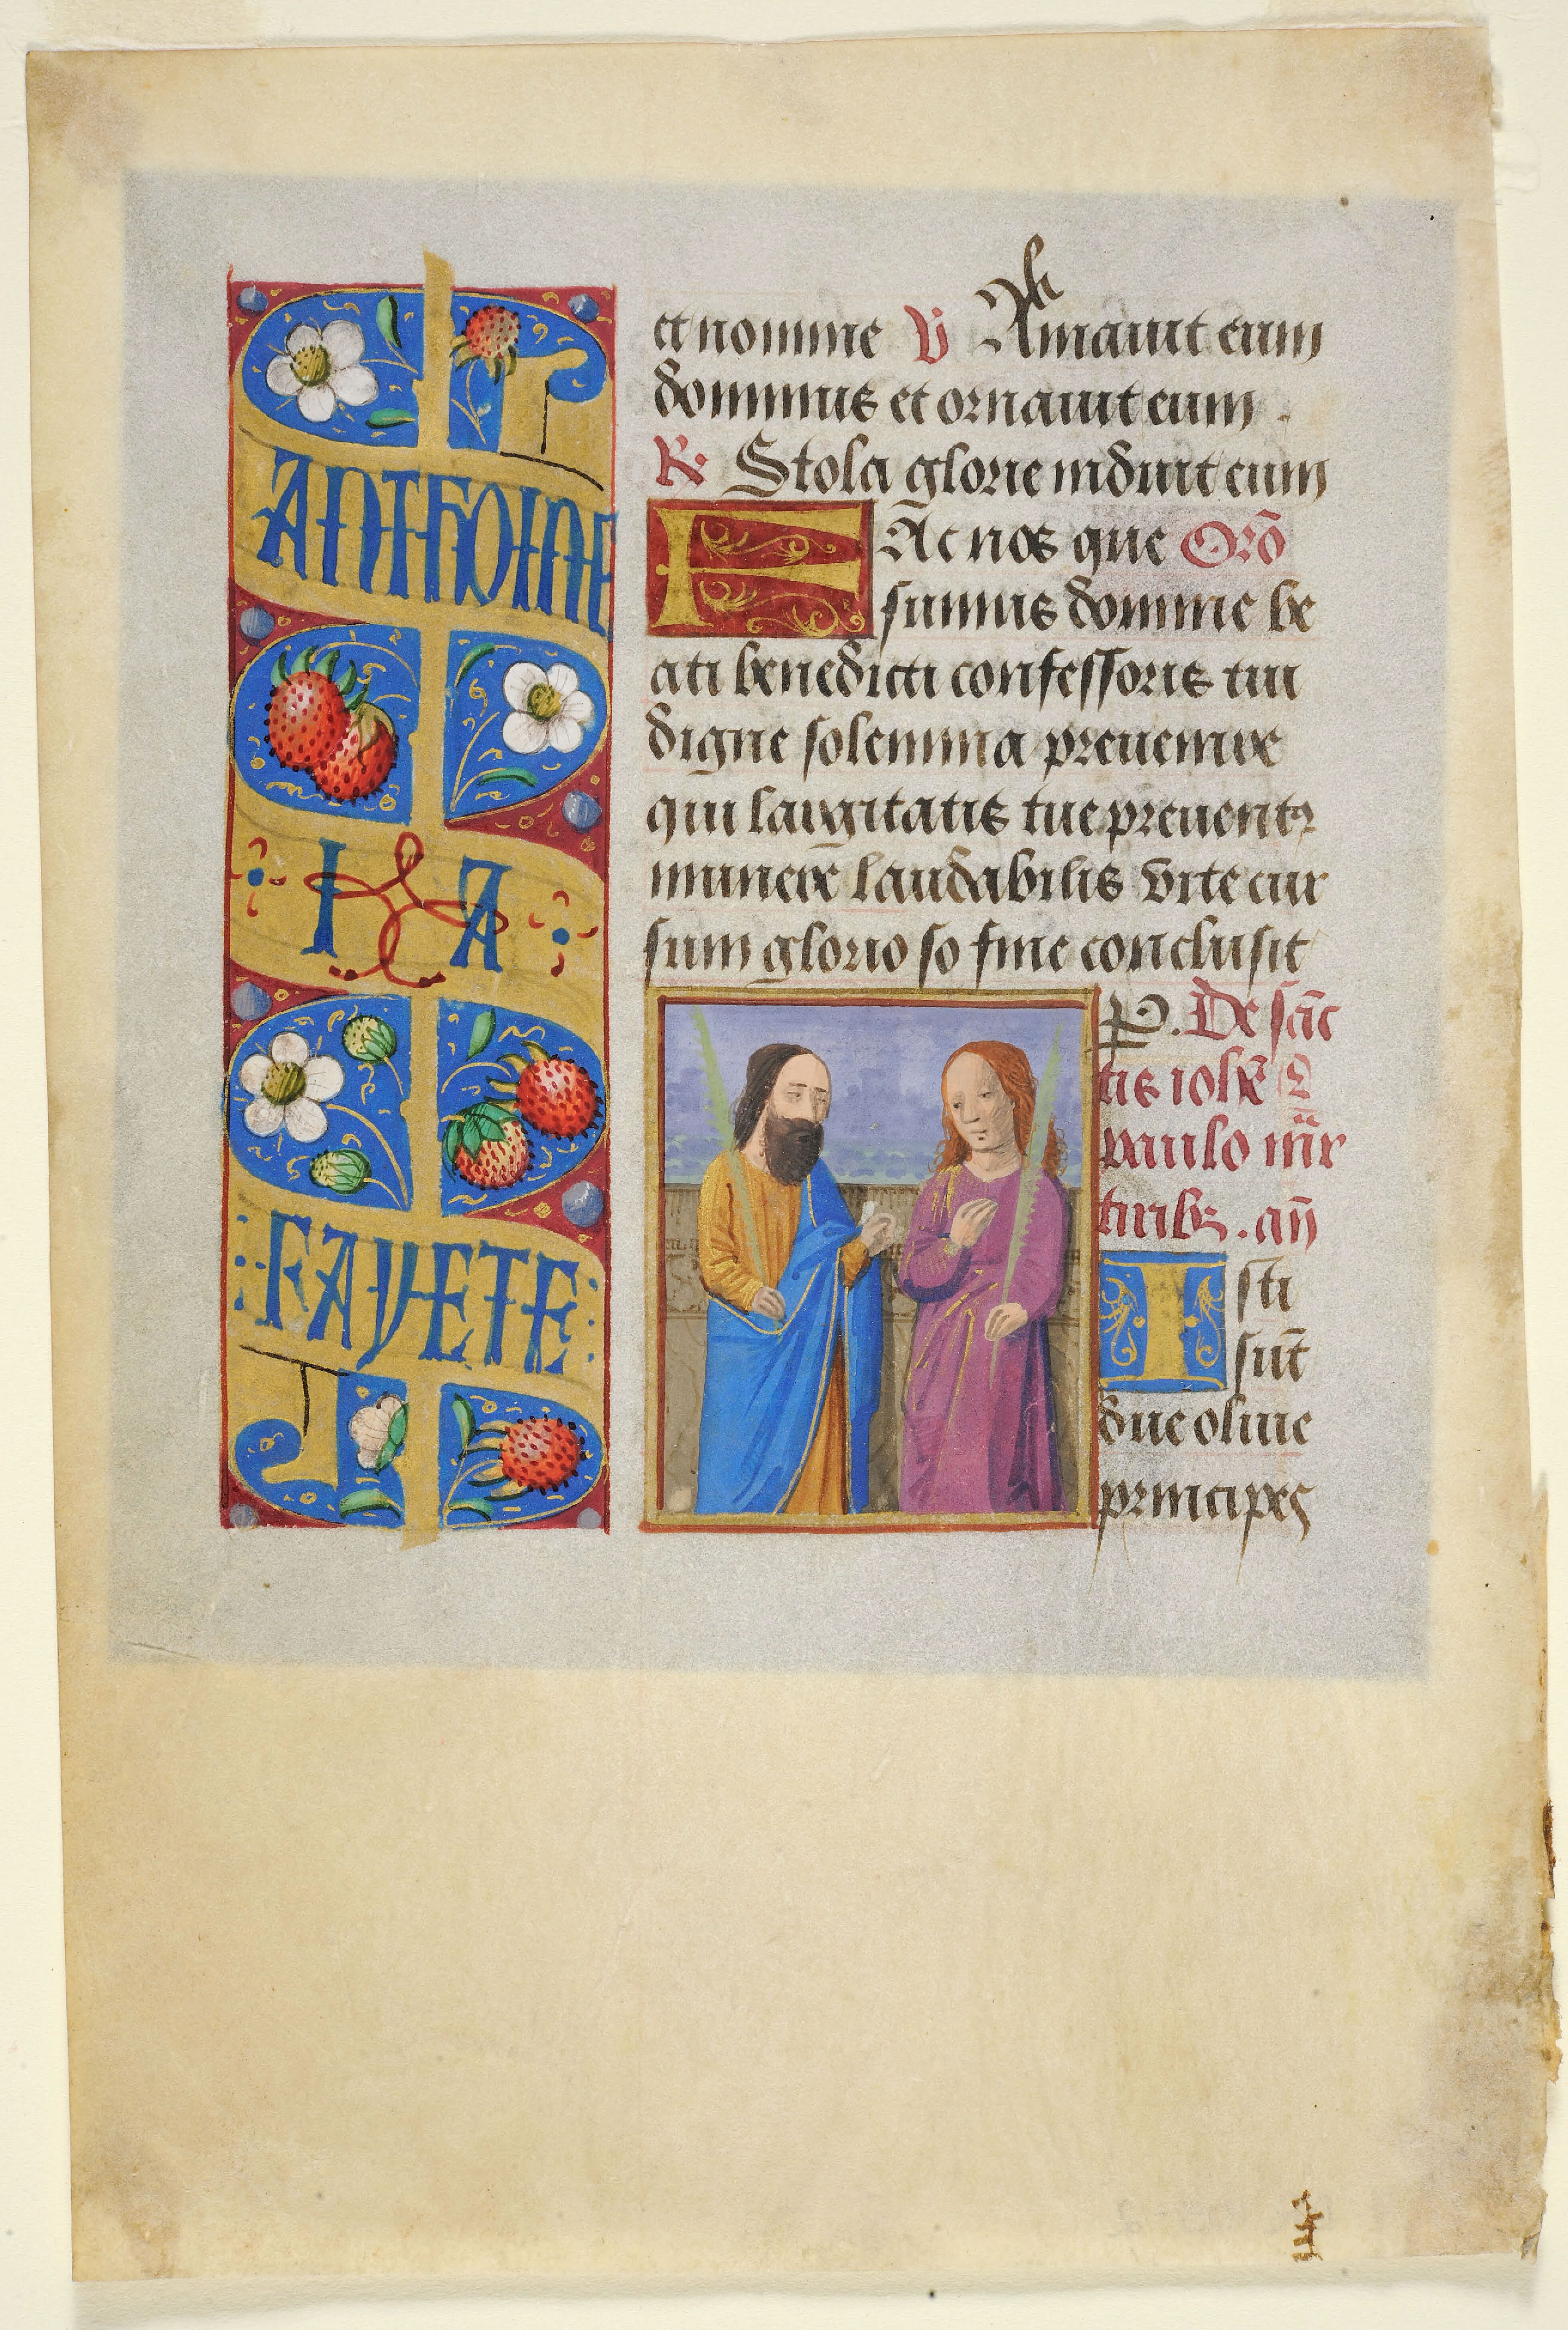 ANTHOINE
I A
FAYETE
et nomine V Amauit eum
dominus et ornauit eum .
R Stola glorie induit eum
FAc nos que Orō
sumus domine be
ati benedicti confessoris tui
digne solemnia preuenire
qui largitatis tue preuentꝰ
munere laudabilis vite cur
sum glorioso fine conclusit
P. De sāc
tis ioħe ⁊
paulo mr̄
tiribꝫ . añ
Isti
sūt
due oliue
principes